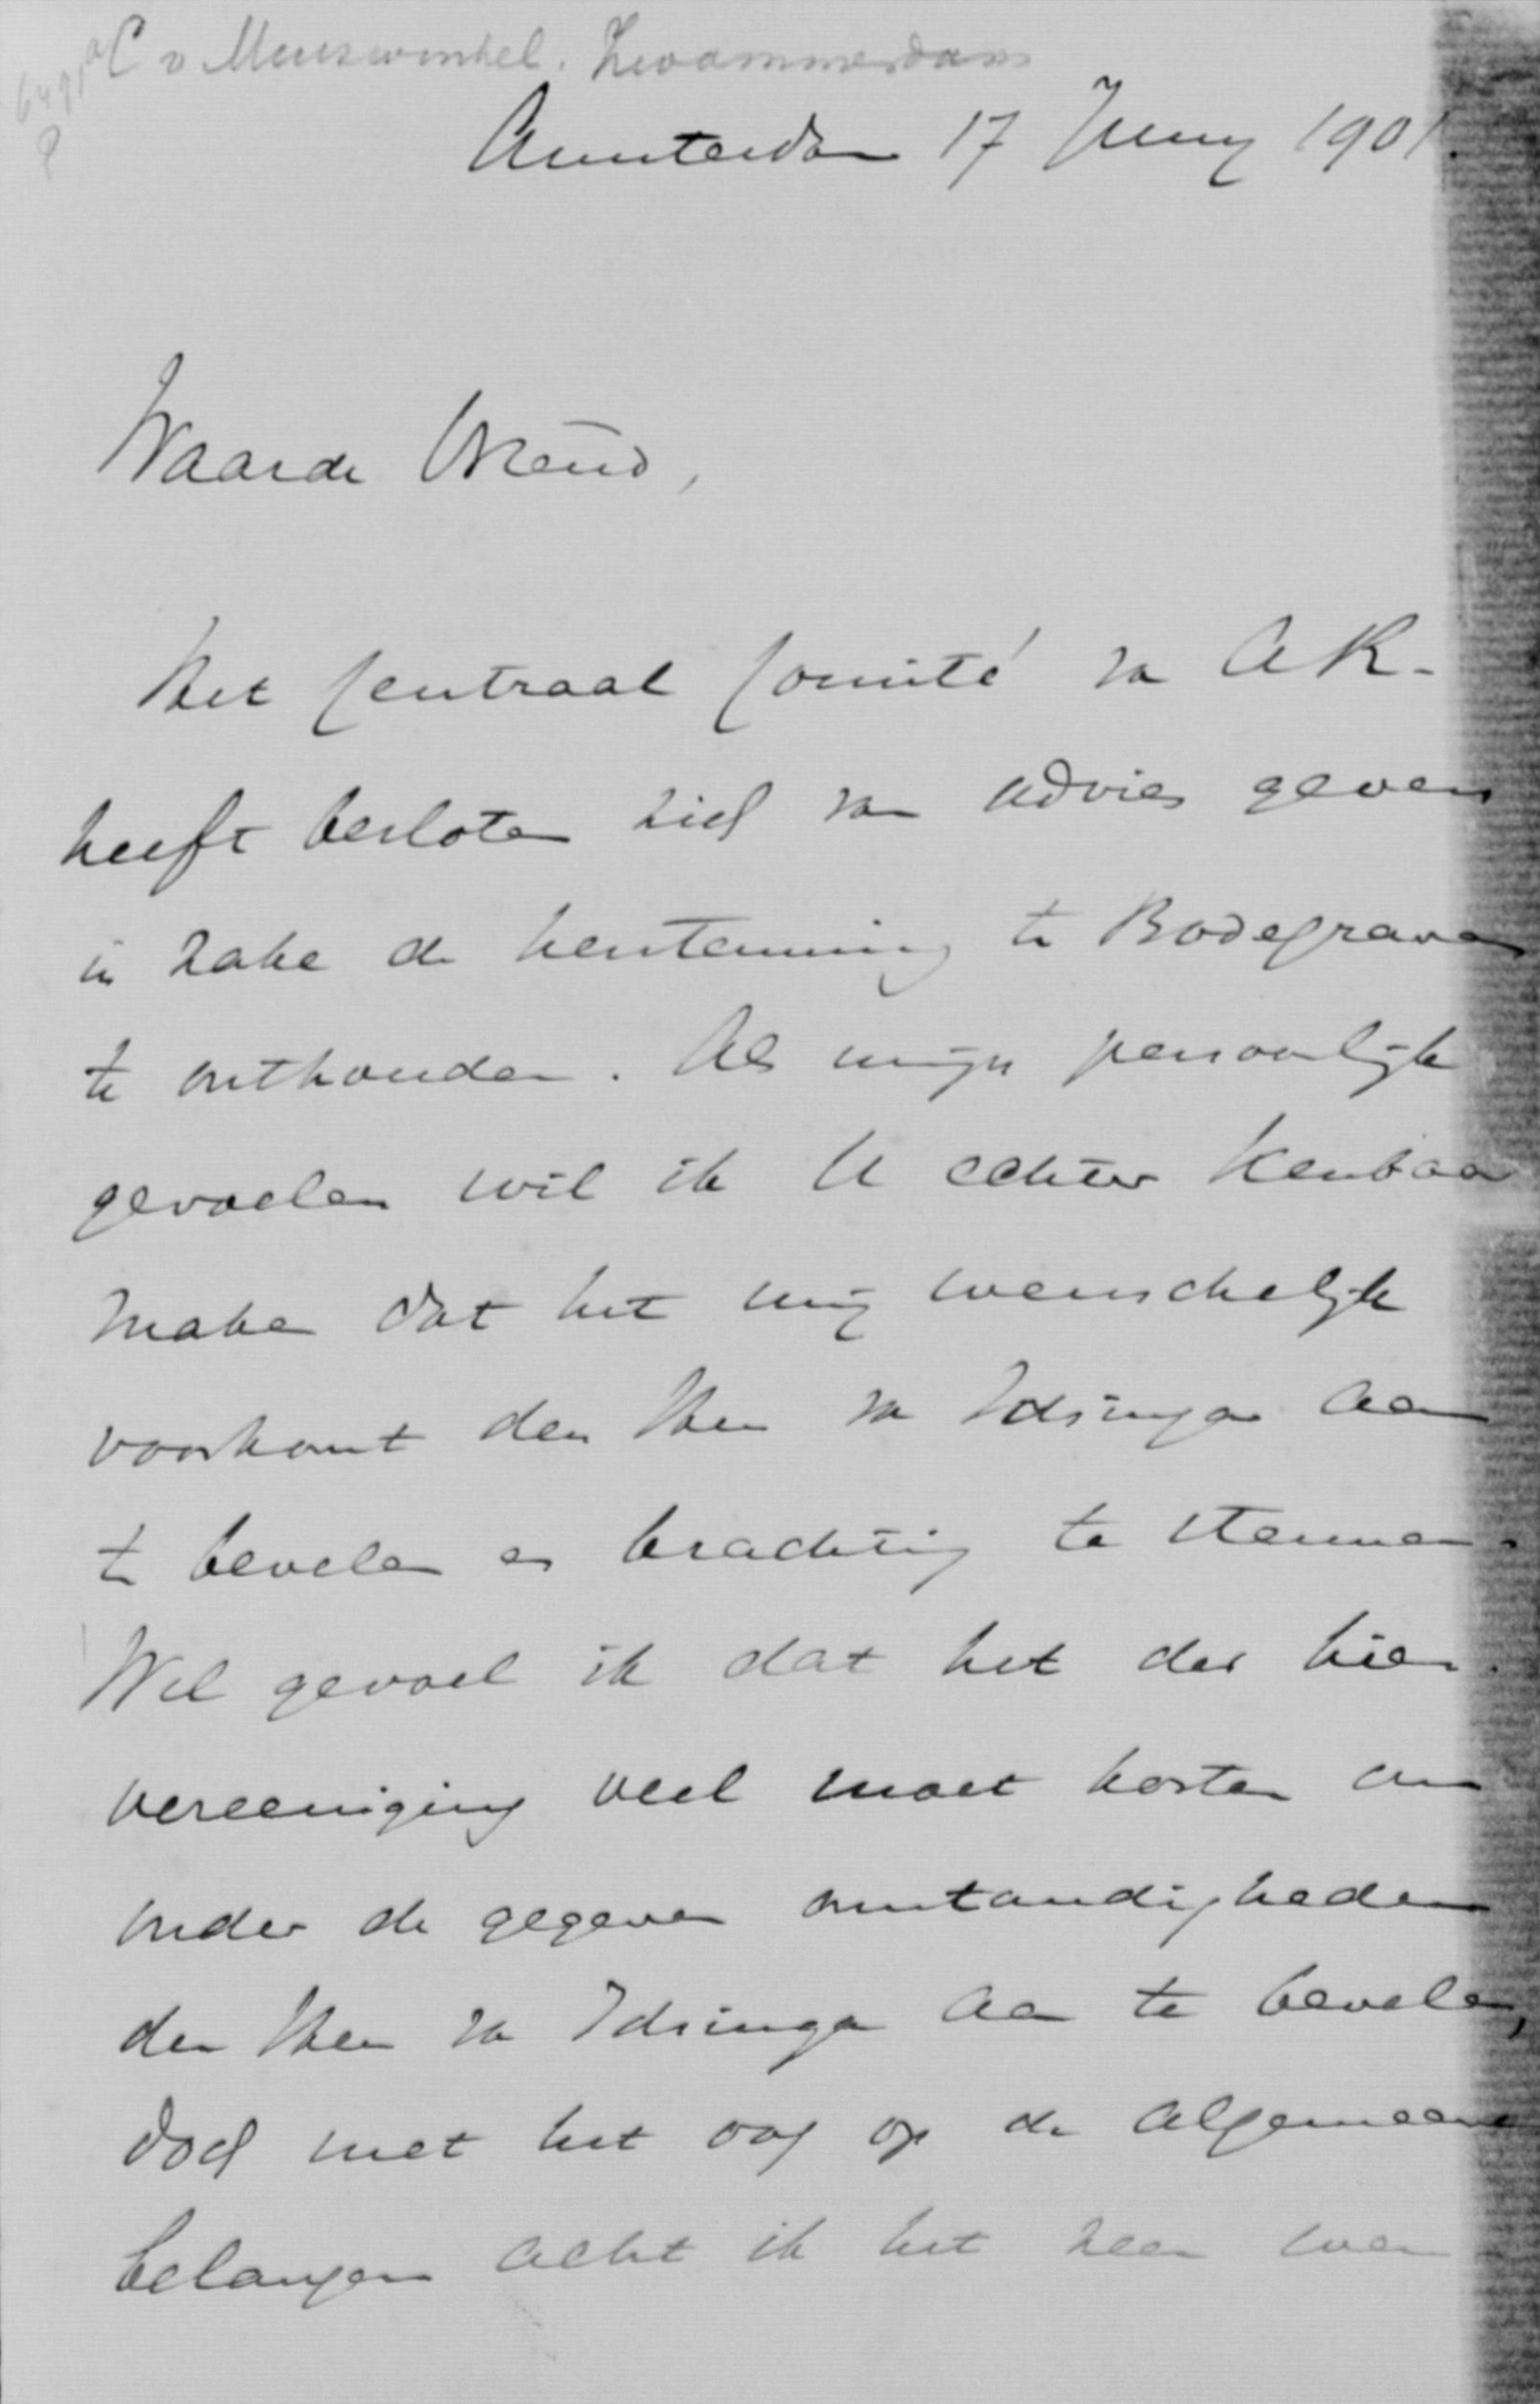 aC v Meeuswinkel. Zwammerdam
6491
Amsterdam 17 Juny 1901.
Waarde Vriend,
Het Centraal Comité van AR-
heeft besloten zich van advies geven
in zake de herstemming te Bodegraven
te onthouden. Als mijn persoonlijk
gevoelen wil ik U echter kenbaar
maken dat het mij wenschelijk
voorkomt den Heer van Idsinga aan
te bevelen en krachtig te steunen.
Wel gevoel ik dat het der kies-
vereeniging veel moet kosten om
onder de gegeven omstandigheden
den Heer van Idsinga aan te bevelen,
doch met het oog op de algemeene
belangen acht ik het zeer wen